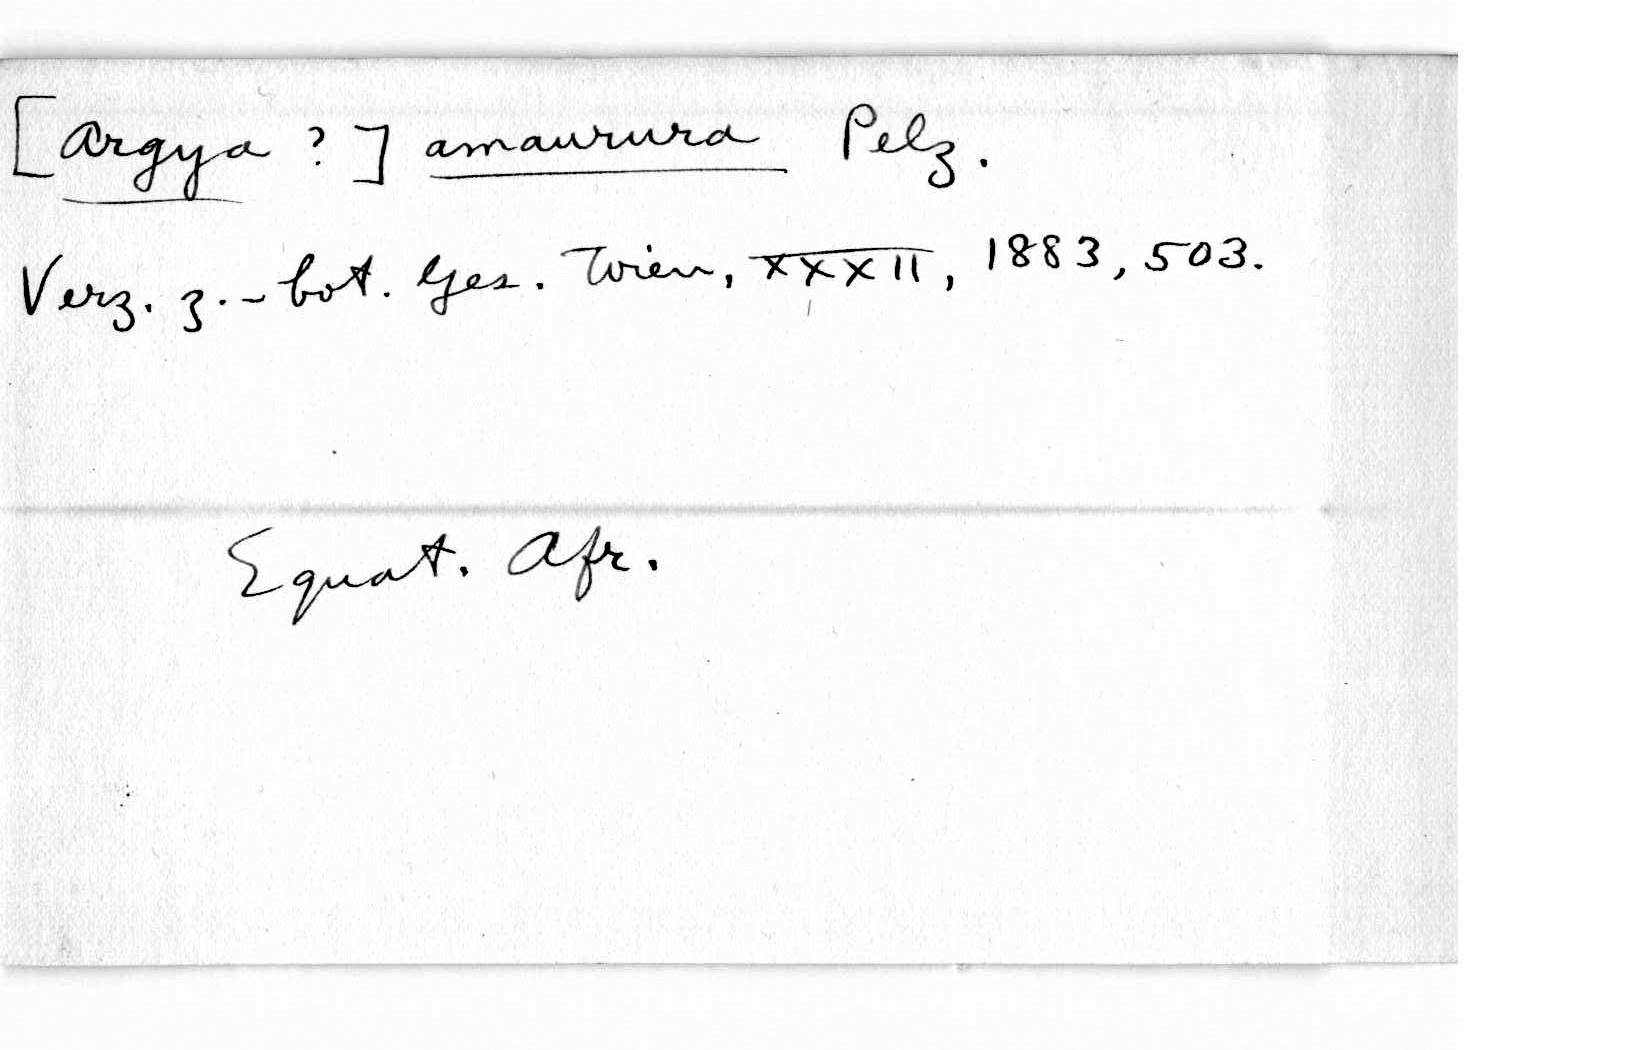 [Argya ?] amaurura Pelz.
Verz. z.-bot. Ges. Wien, XXXII, 1883, 503.
Equat. Afr.